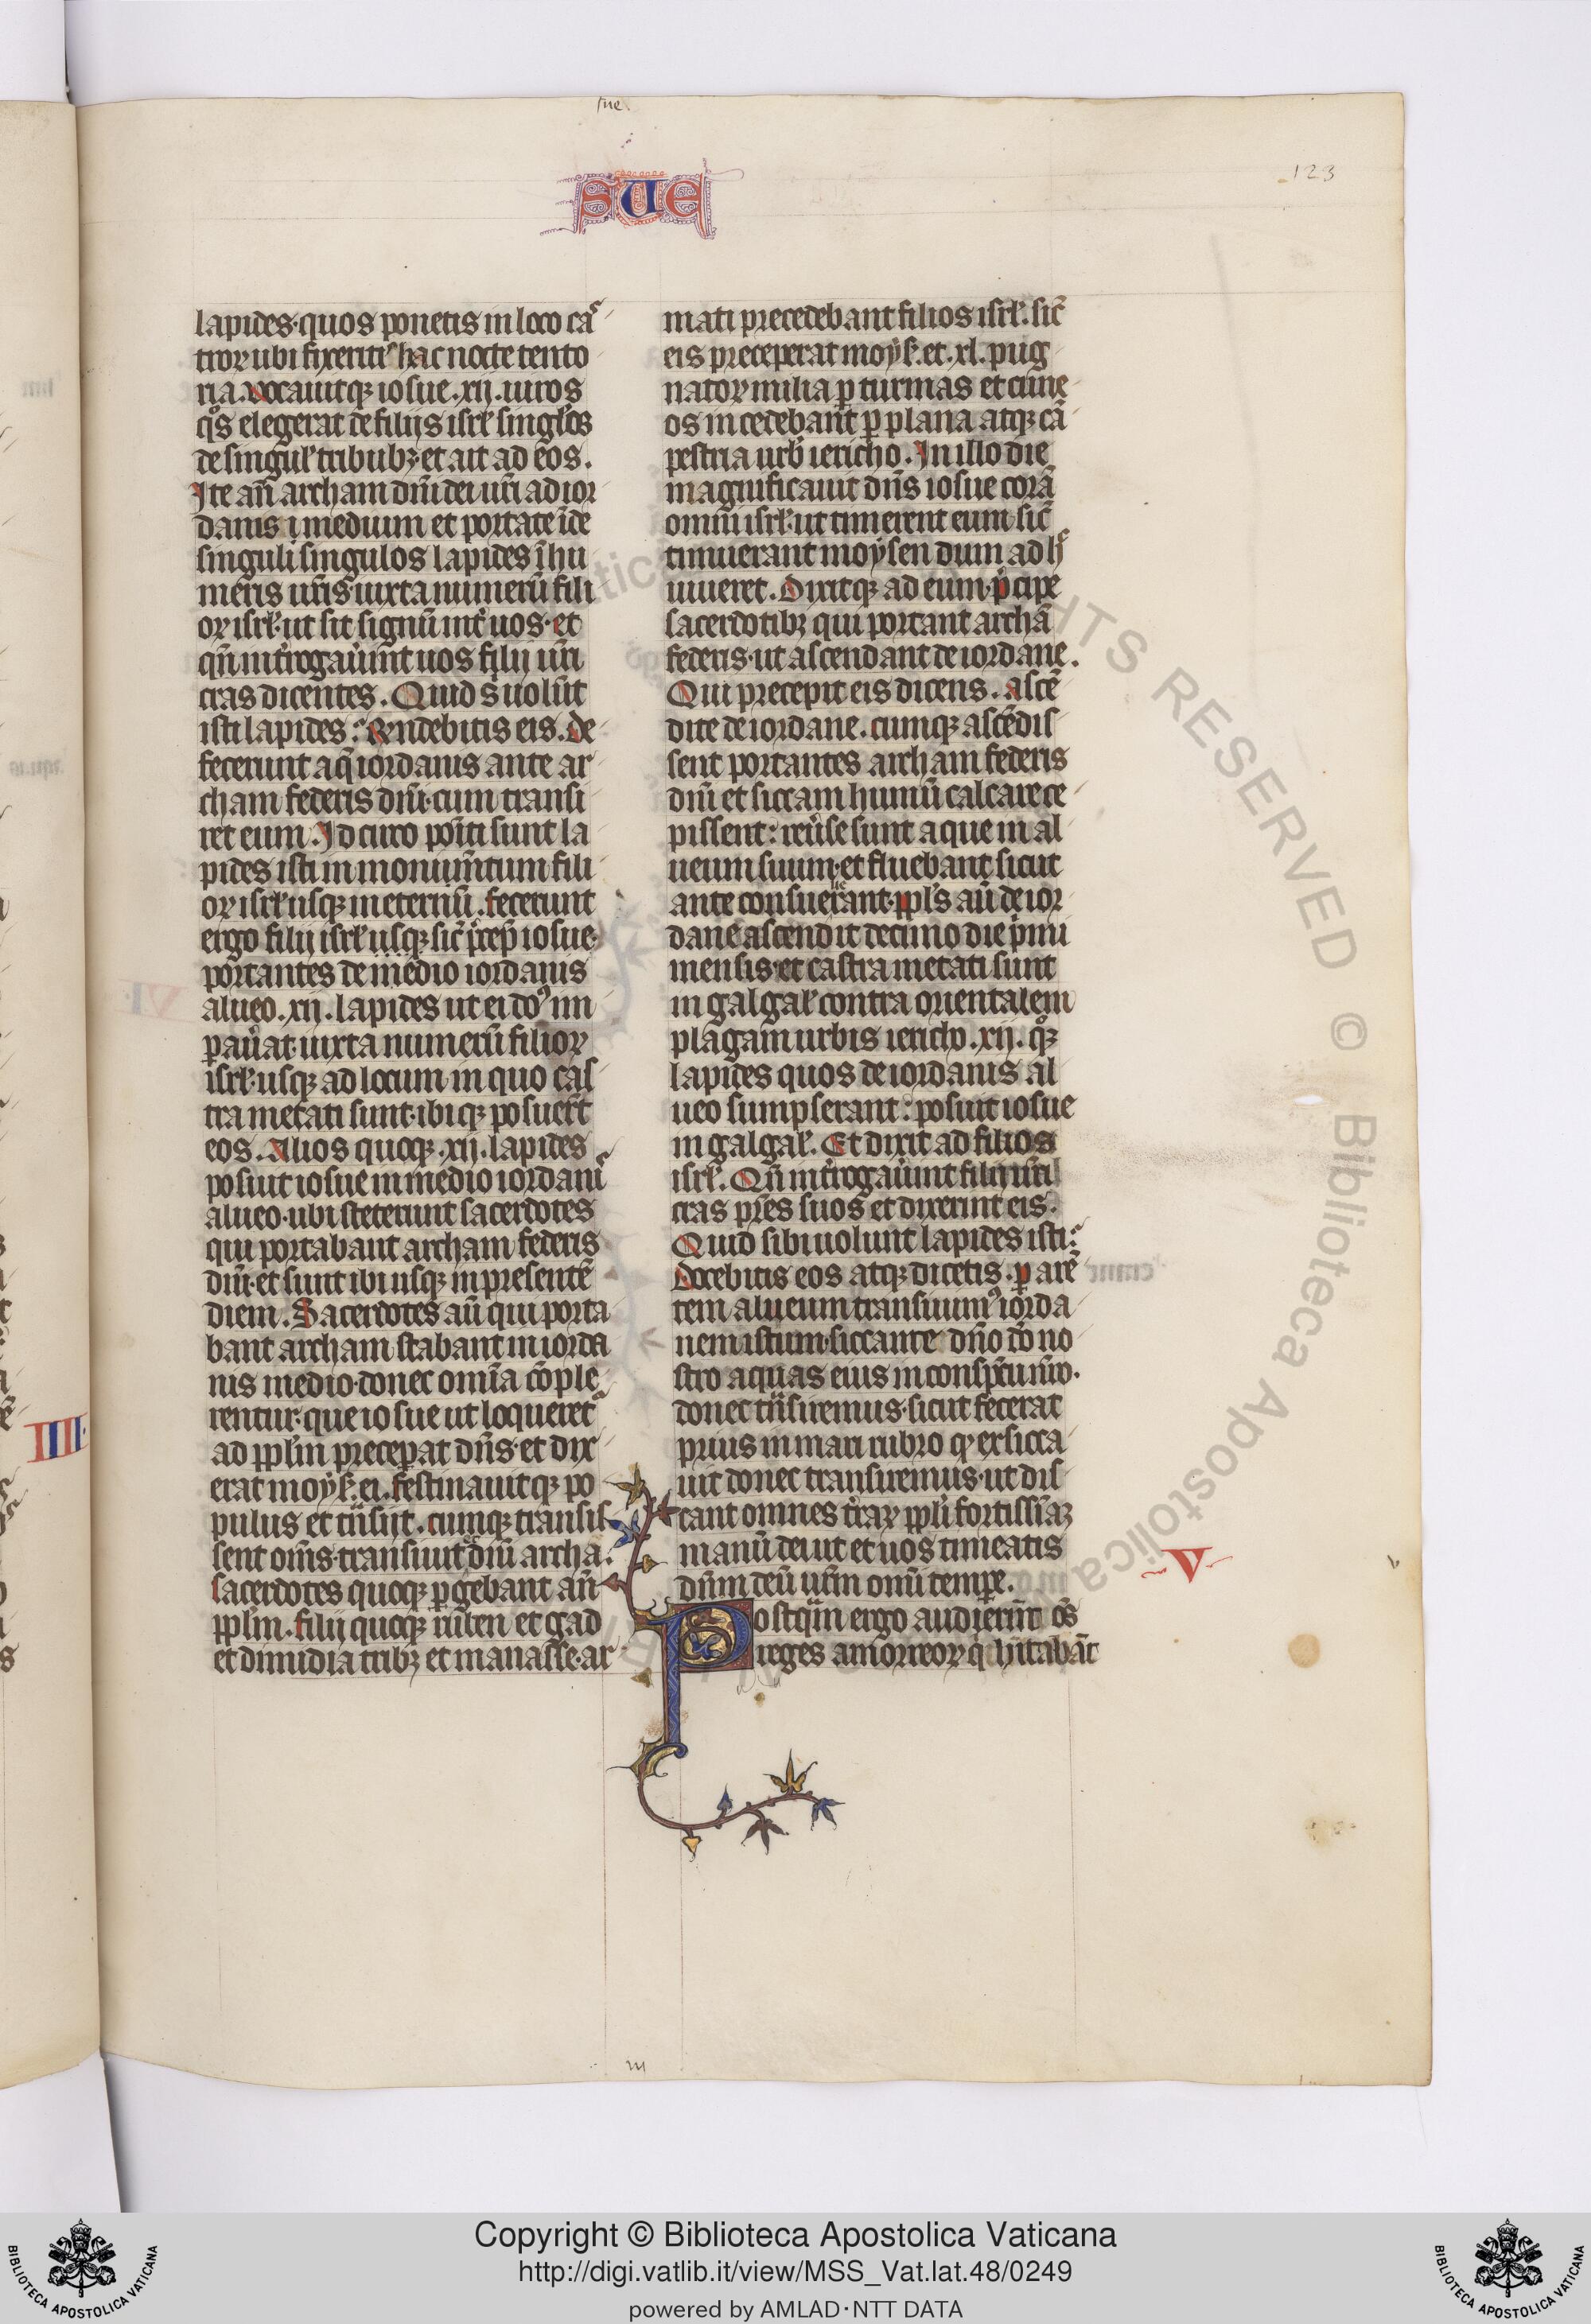 sue
SUE
123
lapides quos ponetis in loco cas
troꝝ ubi fixeritis hac nocte tento
ria. Vocauitqꝫ iosue .xij. uiros
qͦs elegerat de filiis isrl̓ singulos
de singul̓ tribubꝫ et ait ad eos.
Ite an̄ archam dn̄i dei ur̄i ad ior
danis i medium et portate ı̄de
singuli singulos lapides ı̄ hu
meris ur̄is iuxta numerū fili
oꝝ isrl̓ ut sit signū int̓ uos et
qn̄ int̓rogau̓int uos filij ur̄i
cras dicentes. Quid s̓ uolūt
isti lapides: Rn̄debitis eis. De
fecerunt aq̄ iordanis ante ar
cham federis dn̄i cum transi
ret eum. Idcirco poīti sunt la
pides isti in monum̄tum fili
oꝝ isrl̓ usqꝫ in eternū. fecerunt
ergo filij isrl̓ sic̄ p̄cep̄ iosue
portantes de medio iordanis
alueo .xij. lapides ut ei doꝰ im
ꝑau̓at iuxta numerū filioꝝ
isrl̓ usqꝫ ad locum in quo cas
tra metati sunt ibiqꝫ posuer̄t
eos. Alios quoqꝫ .xij. lapides
posuit iosue in medio iordanis
alueo ubi steterunt sacerdotes
qui portabant archam federis
dn̄i et sunt ibi usqꝫ in presentē
diem. Sacerdotes aū qui porta
bant archam stabant in iorda
nis medio donec omīa cōple
rentur que iosue ut loqueret᷑
ad ppl̄m preceꝑat dn̄s et dix
erat moys̓ ei. festinauitqꝫ po
pulus et tͣnsiit. cumqꝫ transis
sent om̄s transiuit dn̄i archa
sacerdotes quoqꝫ ꝑgebant an̄
ppl̄m. filij quoqꝫ ruben et gad
et dimidia tribꝫ et manasse ar
mati precedebant filios isrl̓ sic̄
eis preceperat moys̓. et .xl. pug
natoꝝ milia ꝑ turmas et cune
os incedebant ꝑ plana atqꝫ cā
pestria urb̓ iericho. In illo die
magnificauit dn̄s iosue corā
omni isrl̓ ut timerent eum sic̄
timuerant moysen dum adhͨ
uiueret. Dixitqꝫ ad eum p̓cipe
sacerdotibꝫ qui portant archā
federis ut ascendant de iordane.
Qui precepit eis dicens. ascē
dite de iordane. cumqꝫ ascēdis
sent portantes archam federis
dn̄i et siccam humū calcare ce
pissent: reu̓se sunt aque in al
ueum suum et fluebant sicut
ante consueuerant. ppl̓s aū de ior
dane ascendit decimo die p̓mi
mensis et castra metati sunt
in galgal̓ contra orientalem
plagam urbis iericho .xij. qͦqꝫ
lapides quos de iordanis al
ueo sumpserant: posuit iosue
in galgal̓. Et dixit ad filios
isrl̓. Qn̄ int̓rogau̓int filij ur̄i
cras pr̄es suos et dixerint eis.
Quid sibi uolunt lapides isti:
Docebitis eos atqꝫ dicetis. ꝑ arē
tem alueum transiuimꝰ iorda
nem istum siccante dn̄o dō no
stro aquas eius in conspc̄u ur̄o.
donec tͣnsiremus sicut fecerat
prius in mari rubro qͥ exsicca
uit donec transiremus ut dis
cant omnes t̓raꝝ ppl̓i fortissīaꝫ
manū dei ut et uos timeatis
dn̄m deū ur̄m omī temꝑe.
Postqͣm ergo audier̄nt om̄s
reges amorreoꝝ qͥ hītabāt
IIII
V
v
m
RIGHTS RESERVED © Biblioteca Apostolica
Copyright © Biblioteca Apostolica Vaticana
http://digi.vatlib.it/view/MSS_Vat.lat.48/0249
powered by AMLAD·NTT DATA
BIBLIOTECA APOSTOLICA VATICANA
BIBLIOTECA APOSTOLICA VATICANA